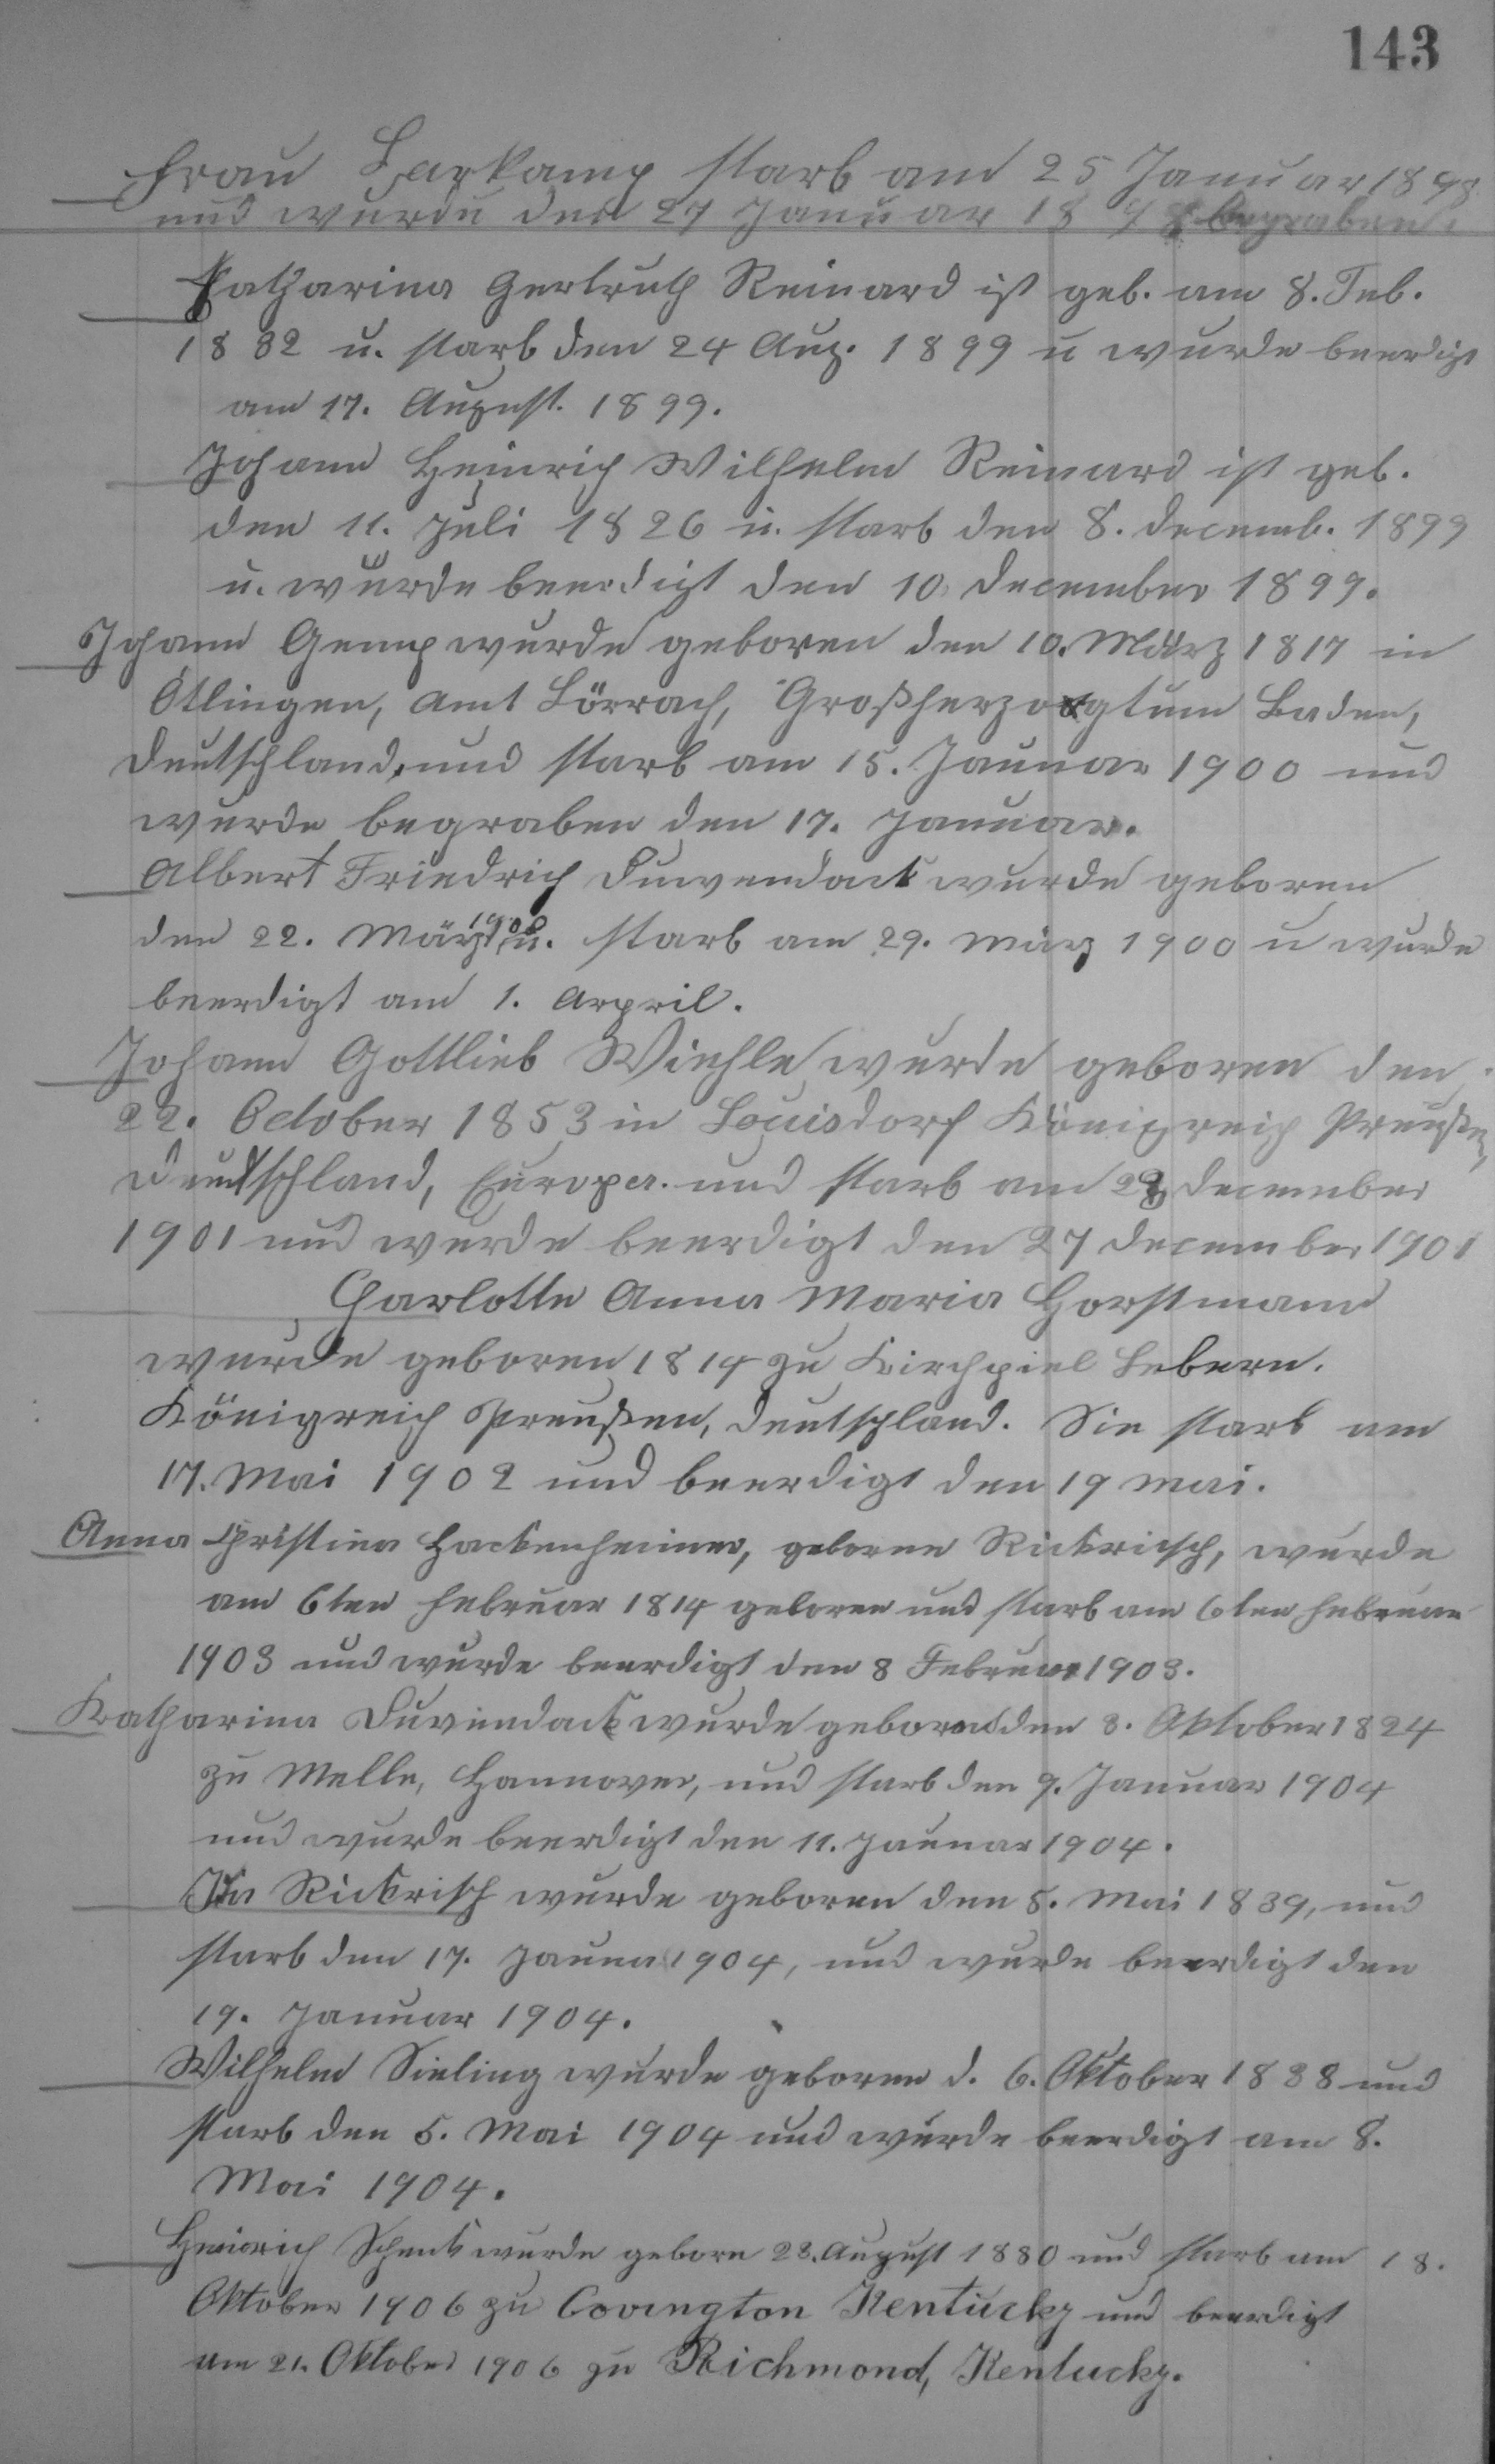 143
Frau Barkamp starb am 25 Januar 1898
und wurde den 27 Januar 1898 begraben.
Katharina Gertruth Reinard ist geb. am 8. Feb.
1882 u. starb den 24 Aug. 1899 u wurde beerdigt
am 17. August. 1899.
Johann Heinrich Wilhelm Reinard ist geb.
den 11. Juli 1826 u. starb den 8. Decemb. 1899
u. wurde beerdigt den 10. December 1899.
Johann Gemp wurde geboren den 10. März 1817 in
Ötlingen, Amt Lörrach, Großherzogtum Baden,
Deutschland, und starb am 15. Januar 1900 und
wurde begraben den 17. Januar.
Albert Friedrich Duwendack wurde geboren
den 22. März 1900 u. starb am 29. März 1900 u wurde
beerdigt am 1. Arpril.
Johann Gottlieb Wiehle wurde geboren den
22. October 1853 in Louisdorf Königreich Preußen,
Deutschland, Europa. und starb am December
1901 und wurde beerdigt den 27 December 1901
Charlotte Anna Maria Horstmann
wurde geboren 1814 zu Kirchpiel Lebern.
Königreich Preußen, Deutschland. Sie starb am
17. Mai 1902 und beerdigt den 19 Mai.
Anna Christina Hackenheimer, geborne Rickrisch, wurde
am 6ten Februar 1814 geboren und starb am 6ten Februar
1903 und wurde beerdigt den 8 Februar 1903.
Katharina Duvendack wurde geboren den 3. Oktober 1824
zu Melle, Hannover, und starb den 9. Januar 1904
und wurde beerdigt den 11. Januar 1904.
Rickrisch wurde geboren den 5. Mai 1839, und
starb den 17. Januar 1904, und wurde beerdigt den
19. Januar 1904.
Wilhelm Sieling wurde geboren d. 6. Oktober 1838 und
starb den 5. Mai 1904 und wurde beerdigt am 8.
Mai 1904.
Heinrich Schenk wurde geborn 23. August 1880 und starb am 18.
Oktober 1906 zu Covington Kentucky und beerdigt
am 21. Oktober 1906 zu Richmond, Kentucky.